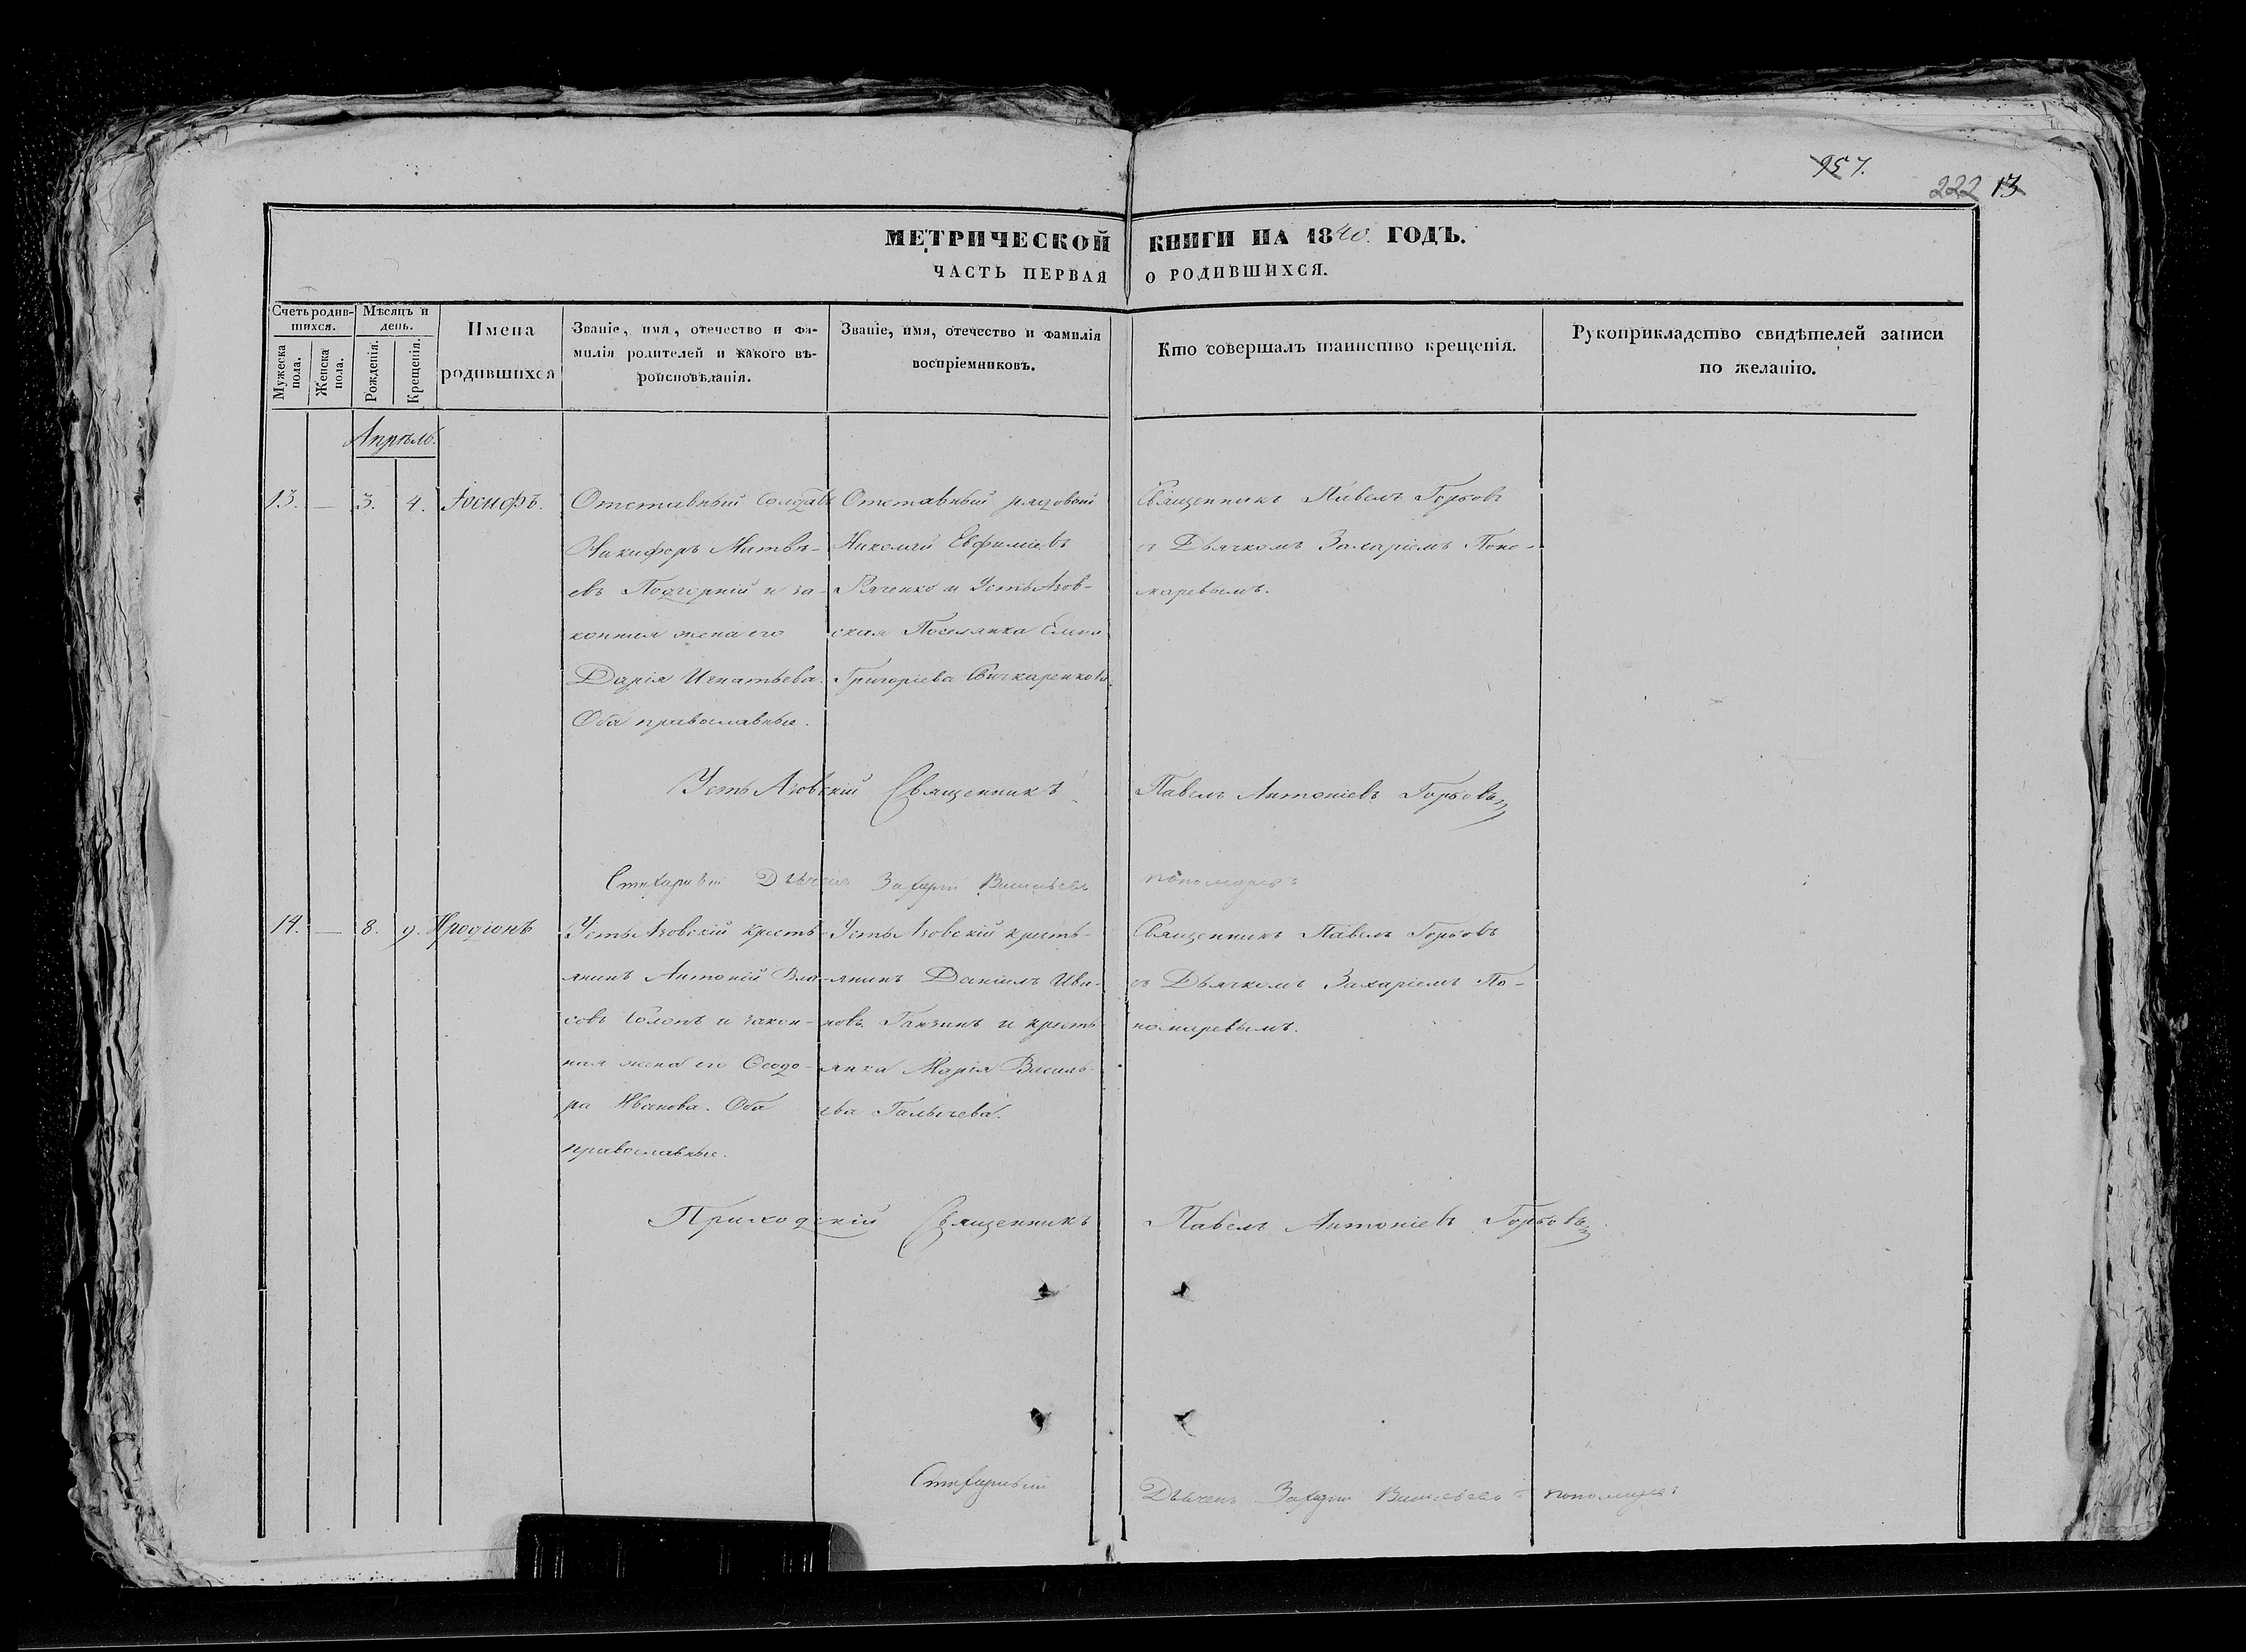 957.
222 13
МЕТРИЧЕСКОЙ КНИГИ НА 1840. ГОДЪ.
ЧАСТЬ ПЕРВАЯ О РОДИВШИХСЯ.
Счетъ родив-
шихся.
Мужеска
пола.
Женска
пола.
Мѣсяцъ и
день.
Рожденія.
Крещенія.
Имена
родившихся
Званіе, имя, отечество и фа-
милія родителей и какого вѣ-
роисповѣданія.
Званіе, имя, отечество и фамилія
воспріемниковъ.
Кто совершалъ таинство крещенія.
Рукоприкладство свидѣтелей записи
по желанію.
Апрѣль.
13. — 3. 4. Іосифъ.
Отставный Солдатъ
Никифоръ Матвѣ-
евъ Подгорній и за-
конная жена его
Дарія Игнатьева.
Оба православные.
Отставный рядовой
Николай Евфиміевъ
и Усть Азов-
ская Поселянка
Григоріева
Священникъ Павелъ Горбовъ
съ Дьячкомъ Захаріемъ Поно-
маревымъ.
Усть Азовскій Священникъ Павелъ Антоніевъ Горбовъ
Дьячекъ Захарій Васильевъ пономаревъ
14. — 8. 9. Иродіонъ
Усть Азовскій кресть-
янинъ Антоній Вла-
совъ и закон-
ная жена его Ѳеодо-
ра Иванова. Оба
православные.
Усть Азовскій кресть-
янинъ Даніилъ Ива-
новъ Ганзинъ и кресть
янка Марія Василь-
ева Галычева.
Священникъ Павелъ Горбовъ
съ Дьячкомъ Захаріемъ По-
номаревымъ.
Приходскій Священникъ Павелъ Антоніевъ Горбовъ
Дьячекъ Захарій Васильевъ пономаревъ